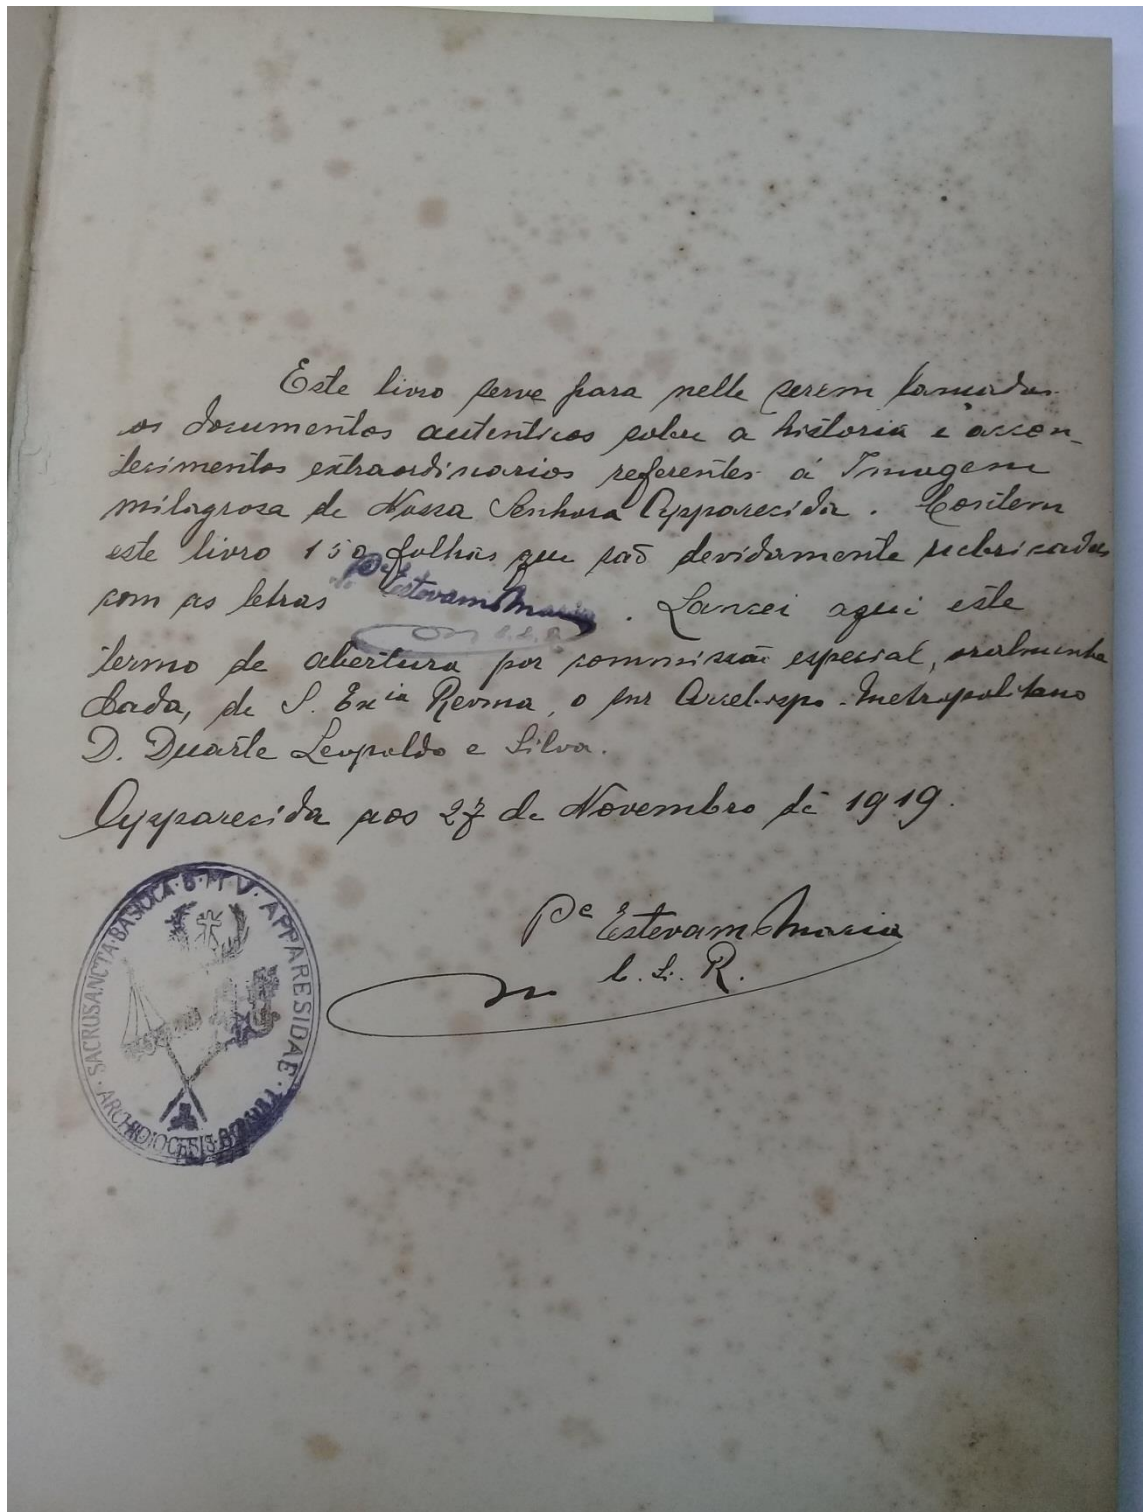 Este livro serve para nelle serem lançados
os documentos autenticos sobre a historia e accon-
tecimentos extraordinarios referentes á Imagem
milagrosa de Nossa Senhora Apparecida. Contem
este livro 150 folhas que são devidamente rubricadas
com as letras Pe Estevam Maria . Lancei aqui este
termo de abertura por commissão especial,
dada, de S. Excia Revma, o snr Arcebispo Metropolitano
D. Duarte Leopoldo e Silva.
Apparecida aos 27 de Novembro de 1919.
Pe Estevam Maria
C. Ss. R.
SACROSANCTA·BASILICA·B·M·V·APPARESIDAE·
ARCHIDIOCESIS